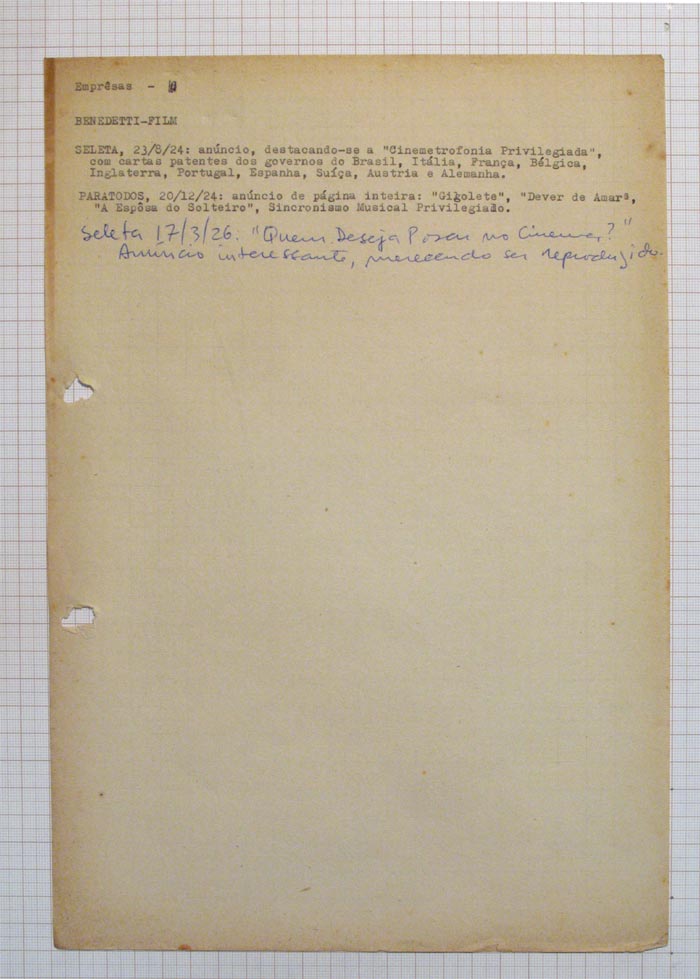 Emprêsas -
BENEDETTI-FILM
SELETA, 23/8/24: anúncio, destacando-se a "Cinemetrofonia Privilegiada",
com cartas patentes dos governos do Brasil, Itália, França, Bélgica,
Inglaterra, Portugal, Espanha, Suíça, Austria e Alemanha.
PARATODOS, 20/12/24: anúncio de página inteira: "Gigolete", "Dever de Amar",
"A Espôsa do Solteiro", Sincronismo Musical Privilegiado.
Seleta 17/3/26: "Quem Deseja Posar no Cinema?"
Anúncio interessante, merecendo ser reproduzido.